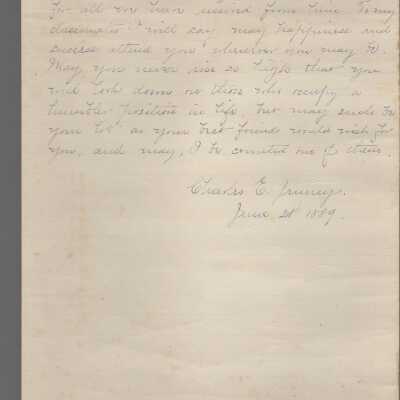 for all we have received from time. To my
classmates I will say may happiness and
success attend you wherever you may be.
May you never rise so high that you
will look down on those who occupy a
humbler position in life, but may such be
your lot as your best friend would wish for
you, and may I be counted one of them.
Charles E.
June, 28 1889.